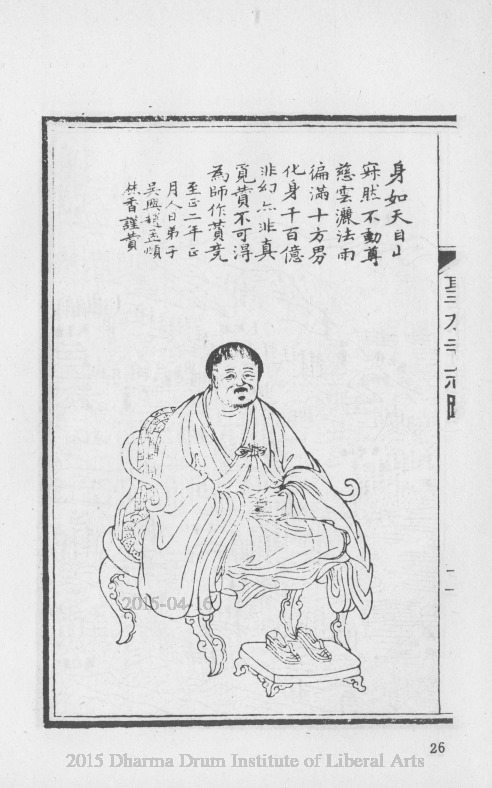 身如天目山
寂然不動尊
慈雲灑法雨
徧滿十方界
化身千百億
非幻亦非真
覓贊不可得
為師作贊竟
至正二年正
月人日弟子
吳興趙孟頫
焚香謹贊
聖水寺志略
2015-04-16
26
2015 Dharma Drum Institute of Liberal Arts